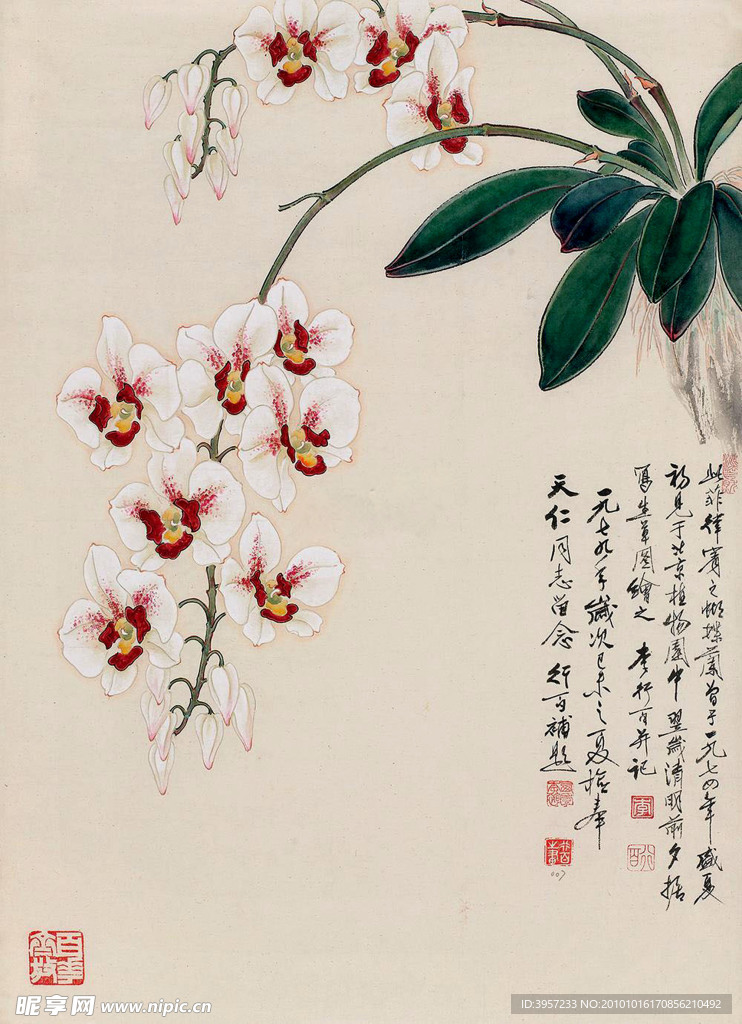 此菲律賓之蝴蝶蘭曾于一九七四年盛夏
初見于北京植物園中翌歲清明前夕据
寫生草圖繪之 李行百并记
一九七九年歲次己未之夏檢奉
天仁同志留念 行百補題
007
昵享网 www.nipic.cn
ID:3957233 NO:20101016170856210492